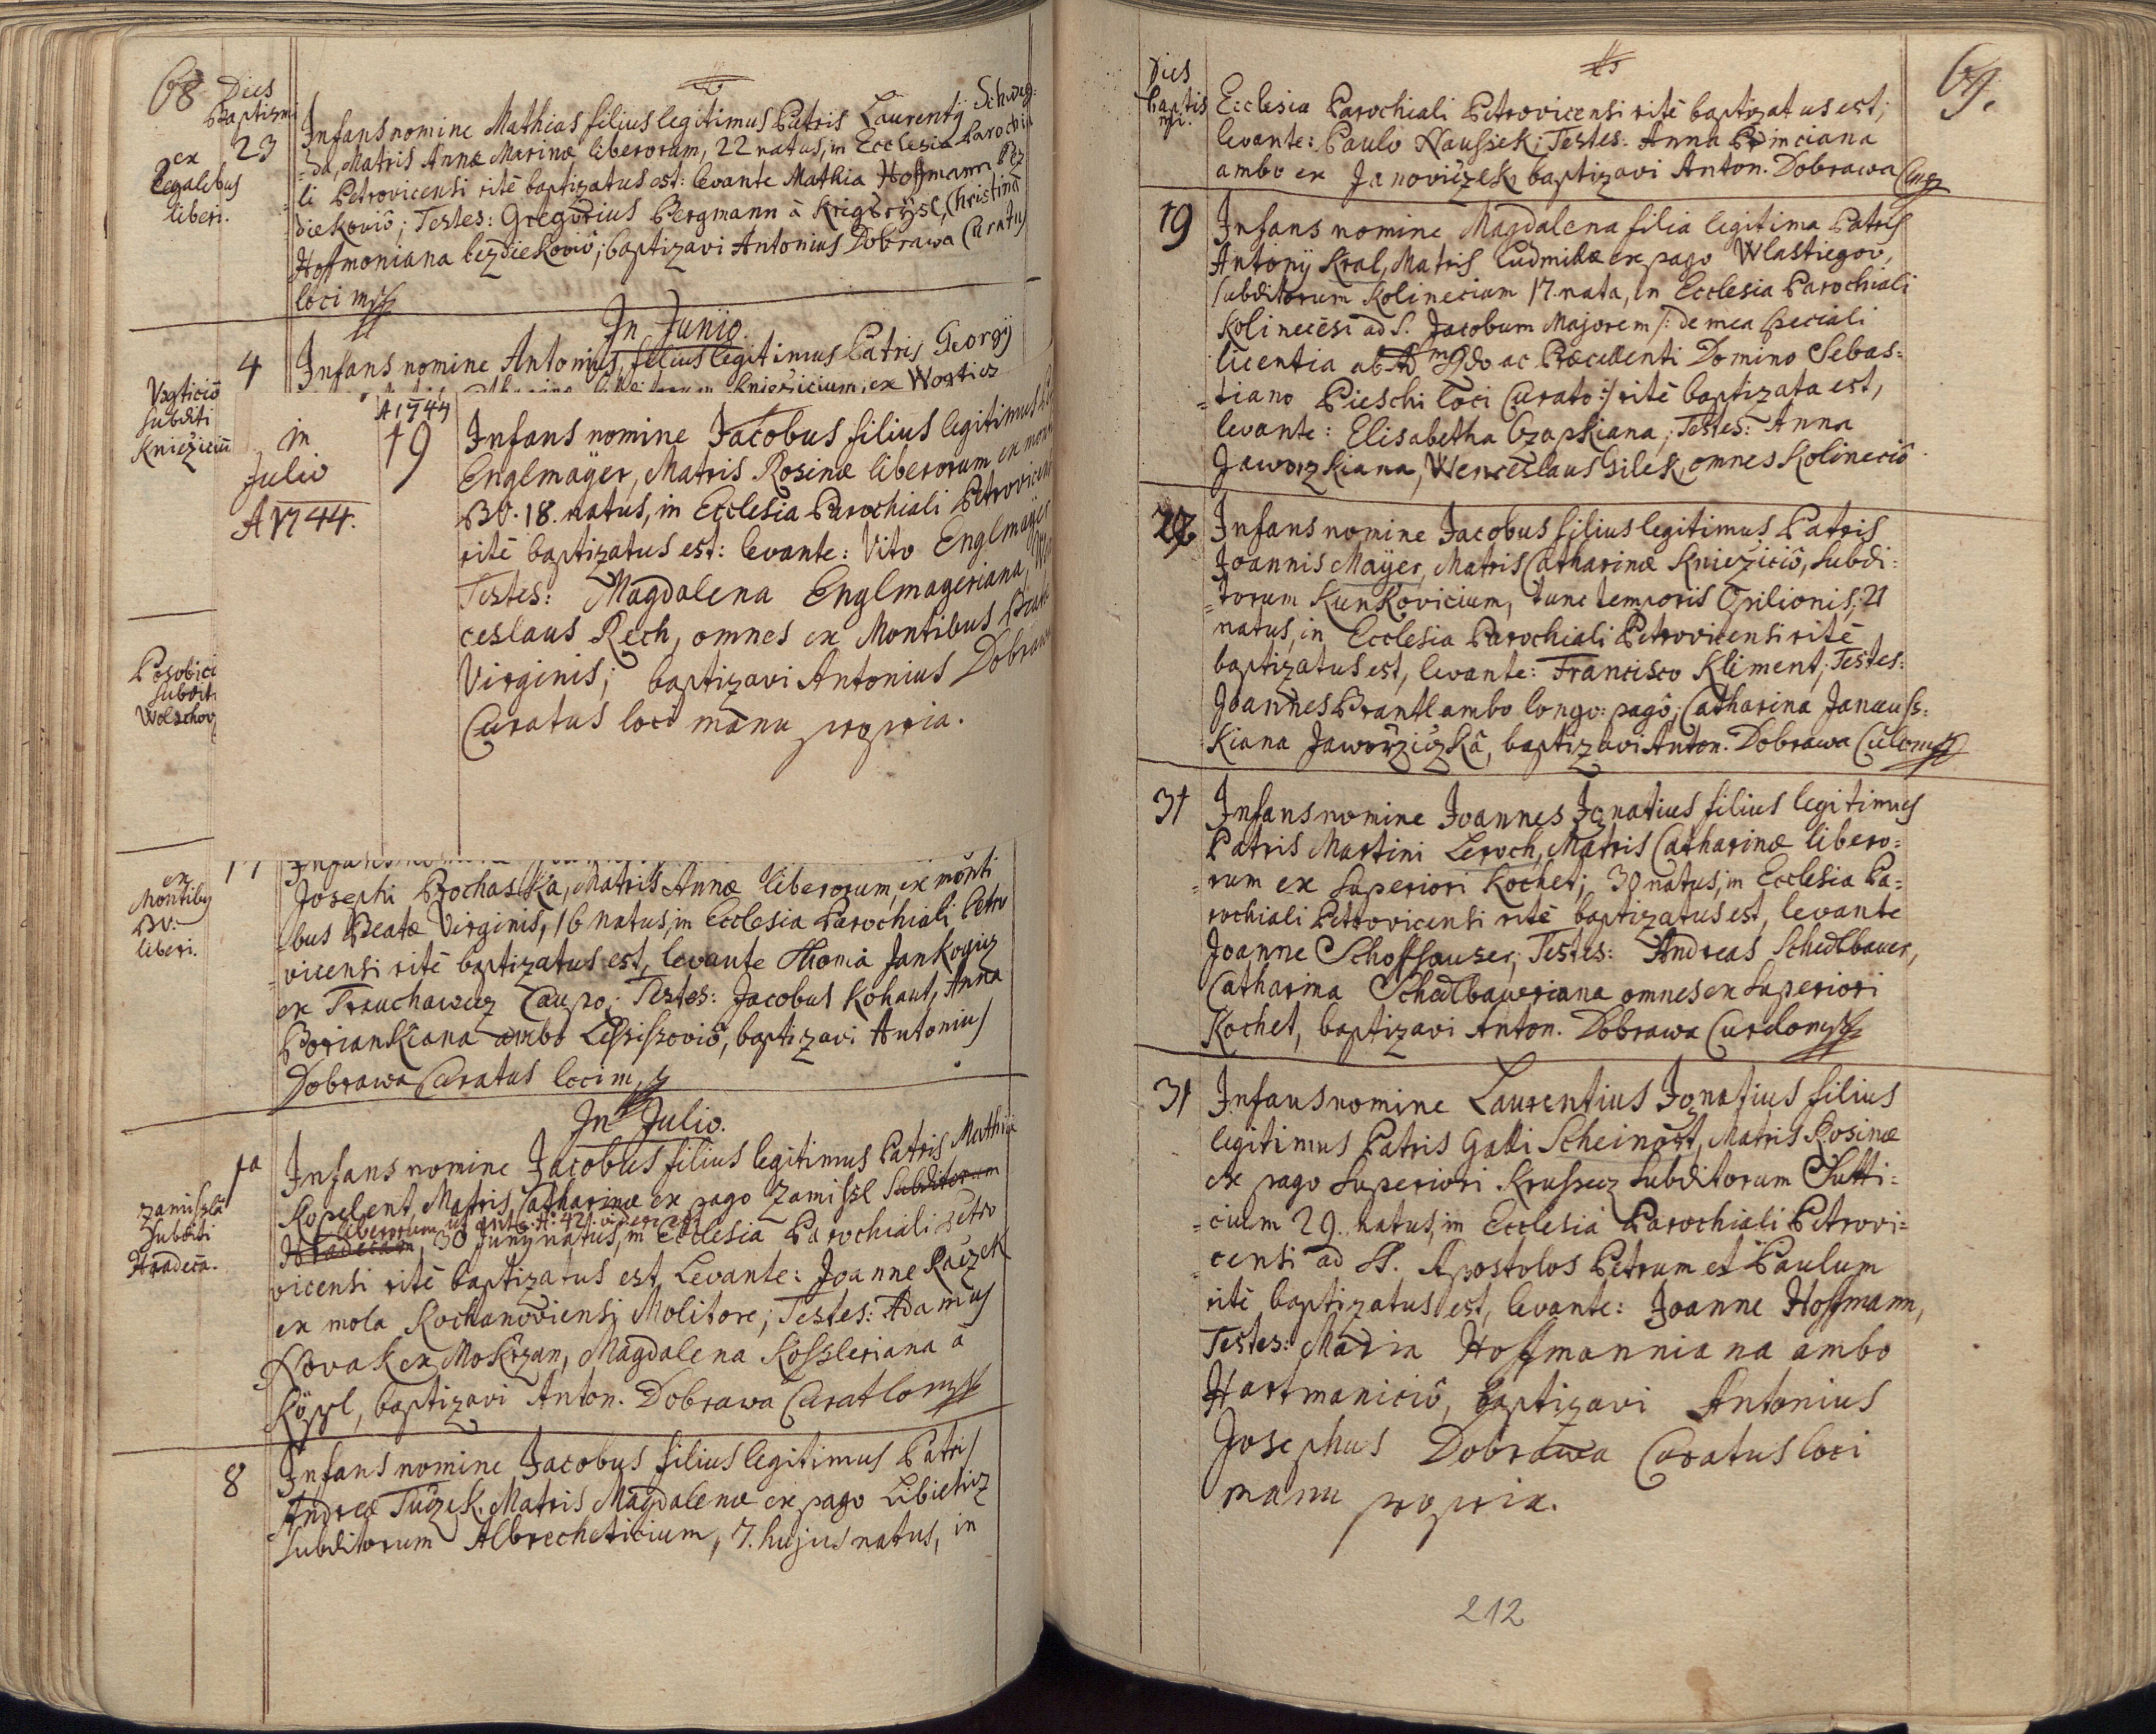 68
Dies
Baptismi
Infans nomine Mathias filius legitimus Patris Laurentÿ Schwey-
-da, Matris Annæ Marinæ liberorum, 22 natus, in Ecclesia Parochia
-li Petrovicensi ritè baptizatus est: levante Mathia Hoffmann Bez
diekoviô; Testes: Gregorius Bergmann à Krigsrÿsl, Christina
Hoffmoniana bezdiekoviô; baptizavi Antonius Dobrawa Curatus
loci mp
23
ex
legalibus
liberi.
In Junio.
4
Infans nomine Antonius, filius legitimus Patris Georgÿ
Kniezicium, ex Wosticz
Vosticiô
subditi
Knieziciũ
in
Julio
A 1744.
A 1744
19
Infans nomine Jacobus filius legitimus
Englmaÿer, Matris Rosinæ liberorum ex
BV. 18. natus, in Ecclesia Parochiali
ritè baptizatus est: levante: Vito Englmaÿer
Testes: Magdalena Englmageriana,
ceslaus Rech, omnes ex Montibus
Virginis; baptizavi Antonius
Curatus loci manu propria.
ex
Montibus
BV.
liberi.
Josephi Prochaska, Matris Annæ liberorum, ex monti
-bus Beatæ Virginis, 16 natus, in Ecclesia Parochiali Petro
-vicensi ritè baptizatus est, levante Thoma Jankogiz
ex Trauchawicz Caupo; Testes: Jacobus Kohaut, Anna
Boriankiana ambo Lessiszoviô, baptizavi Antonius
Dobrawa Curatus loci mp
In Julio.
1a
Infans nomine Jacobus filius legitimus Patris Mathiæ
Kopelent, Matris Catharinæ ex pago Zamissl Subditorum
liberorum ut ante A: 42.
Hradecam, 30 Junÿ natus, in Ecclesia Parochiali Petro
vicensi ritè baptizatus est, Levante: Joanne Raczek
ex mola Kochanoviensi Molitore; Testes: Adamus
Novak ex Mokrzan, Magdalena Kossleriana à
Köppl, baptizavi Anton. Dobrawa Curat lo mp
zamissla
Subditi
Hradecã.
8
Infans nomine Jacobus filius legitimus Patris
Andreæ Tuczek, Matris Magdalenæ ex pago Libieticz
subditorum Albrechticium, 7. hujus natus, in
69.
Dies
Baptis
mi.
Ecclesia Parochiali Petrovicensi ritè baptizatus est;
levante: Paulo Naussek; Testes: Anna Princiana
ambo ex Janoviczek, baptizavi Anton. Dobrawa
19
Infans nomine Magdalena filia legitima Patris
Antonÿ Kral, Matris Ludmilæ ex pago Wlastiegov,
subditorum Kolinecium 17. nata, in Ecclesia Parochiali
Kolinecẽsi ad S. Jacobum Majorem /: de mea speciali
licentia ab Adm Rdo ac Præcellenti Domino Sebas-
-tiano Pieschi loci Curato :/ ritè baptizata est,
levante: Elisabetha Czapkiana; Testes: Anna
Jaworzkiana, Wenceslaus Silek, omnes Kolineciô
22
Infans nomine Jacobus filius legitimus Patris
Joannis Maÿer, Matris Catharinæ Knieziciô, subdi-
-torum Kunkovicium, tunc temporis Opilionis; 21
natus, in Ecclesia Parochiali Petrovicensi ritè
baptizatus est, levante: Francisco Kliment; Testes:
Joannes Brantl ambo longo-pagô, Catharina Janauss-
kiana Jaworziczkâ, baptizavi Anton. Dobrawa Cu lo mp
31
Infans nomine Joannes Ignatius filius legitimus
Patris Martini Leroch, Matris Catharinæ libero-
-rum ex Superiori Kochet; 30 natus, in Ecclesia Pa-
rochiali Petrovicensi ritè baptizatus est, levante
Joanne Schoffhauser; Testes: Andreas Schedlbauer,
Catharina Schedlbaueriana omnes ex Superiori
Kochet, baptizavi Anton. Dobrawa Cur lo mp
31
Infans nomine Laurentius Ignatius filius
legitimus Patris Galli Scheinost, Matris Rosinæ
ex pago Superiori Krussecz subditorum Sutti-
-cium 29. natus, in Ecclesia Parochiali Petrovi-
-censi ad SS. Apostolos Petrum et Paulum
ritè baptizatus est, levante: Joanne Hoffmann,
Testes: Maria Hoffmanniana ambo
Hartmaniciô, baptizavi Antonius
Josephus Dobrawa Curatus loci
manu propria.
212